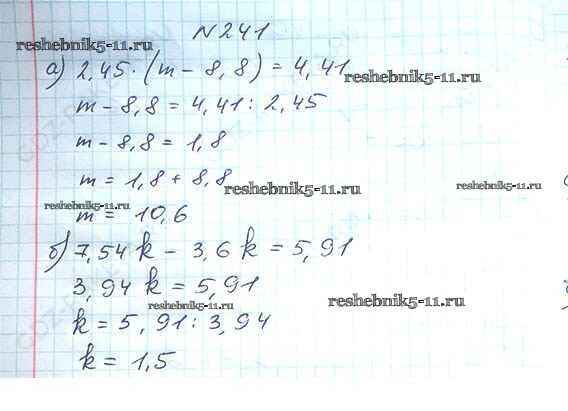 N 241
reshebnik5-11.ru
а) 2,45 · (m - 8,8) = 4,41
reshebnik5-11.ru
m - 8,8 = 4,41 : 2,45
m - 8,8 = 1,8
m = 1,8 + 8,8
reshebnik5-11.ru
reshebnik5-11.ru
reshebnik5-11.ru
m = 10,6
б) 7,54 k - 3,6 k = 5,91
3,94 k = 5,91
reshebnik5-11.ru
reshebnik5-11.ru
k = 5,91 : 3,94
k = 1,5